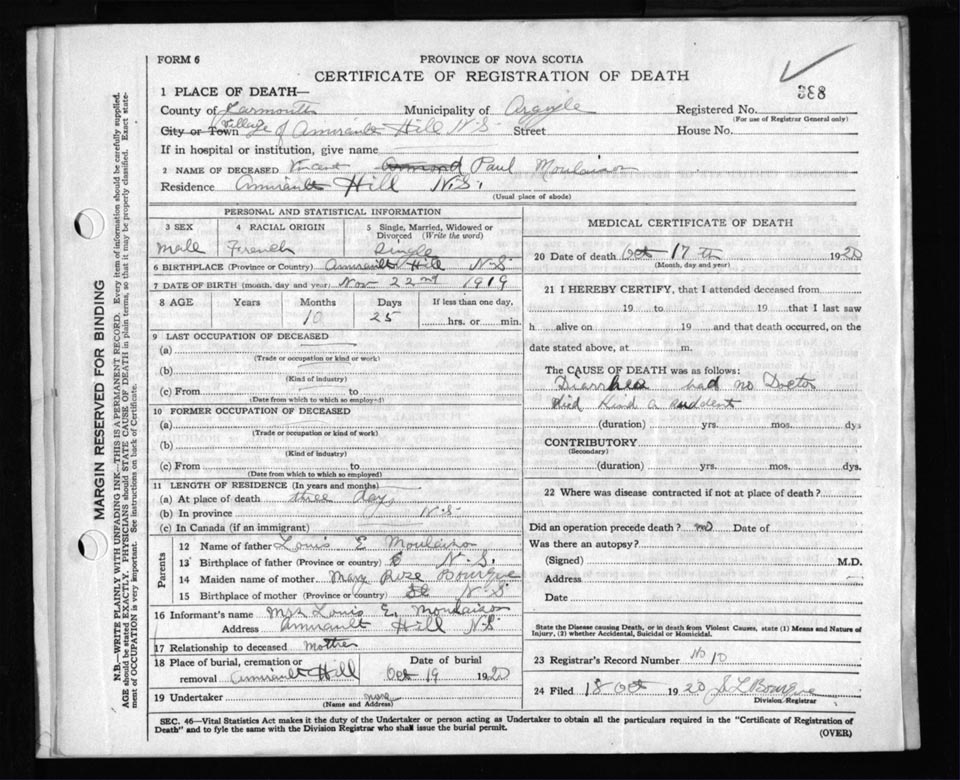 FORM 6
PROVINCE OF NOVA SCOTIA
CERTIFICATE OF REGISTRATION OF DEATH
388
1 PLACE OF DEATH—
County of Yarmouth Municipality of Argyle Registered No.
(For use of Registrar General only)
City or Town Village of Amirault Hill N.S. Street House No.
If in hospital or institution, give name
2 NAME OF DECEASED Vincent Armond Paul Moulaison
Residence Amirault Hill N.S.
(Usual place of abode)
PERSONAL AND STATISTICAL INFORMATION
3 SEX 4 RACIAL ORIGIN 5 Single, Married, Widowed or Divorced (Write the word)
Male French Single
6 BIRTHPLACE (Province or Country) Amirault Hill N.S
7 DATE OF BIRTH (month, day and year) Nov 22nd 1919
8 AGE Years Months Days If less than one day,
10 25 hrs. or min.
9 LAST OCCUPATION OF DECEASED
(a)
(Trade or occupation or kind or work)
(b)
(Kind of industry)
(c) From to
(Date from which to which so employed)
10 FORMER OCCUPATION OF DECEASED
(a)
(Trade or occupation or kind of work)
(b)
(Kind of industry)
(c) From to
(Date from which to which so employed)
11 LENGTH OF RESIDENCE (In years and months)
(a) At place of death three days
(b) In province N.S
(c) In Canada (if an immigrant)
Parents
12 Name of father Louis E Moulaison
13 Birthplace of father (Province or country) N.S.
14 Maiden name of mother Mary Rose Bourque
15 Birthplace of mother (Province or country) N.S
16 Informant's name Mrs Louis E. Moulaison
Address Amirault Hill N.S
17 Relationship to deceased Mother
18 Place of burial, cremation or removal Amirault Hill Date of burial Oct 19 1920
19 Undertaker none
(Name and Address)
MEDICAL CERTIFICATE OF DEATH
20 Date of death Oct 17th 1920
(Month, day and year)
21 I HEREBY CERTIFY, that I attended deceased from
19 to 19 that I last saw
h alive on 19 and that death occurred, on the
date stated above, at m.
The CAUSE OF DEATH was as follows:
Diarrhea had no Doctor
died kind a suddent
(duration) yrs. mos. dys
CONTRIBUTORY
(Secondary)
(duration) yrs. mos. dys.
22 Where was disease contracted if not at place of death?
Did an operation precede death? no Date of
Was there an autopsy?
(Signed) M.D.
Address
Date
State the Disease causing Death, or in death from Violent Causes, state (1) Means and Nature of
Injury, (2) whether Accidental, Suicidal or Homicidal.
23 Registrar's Record Number No 10
24 Filed 18 Oct 1920 Bourque
Division Registrar
SEC. 46—Vital Statistics Act makes it the duty of the Undertaker or person acting as Undertaker to obtain all the particulars required in the "Certificate of Registration of
Death" and to fyle the same with the Division Registrar who shall issue the burial permit.
(OVER)
MARGIN RESERVED FOR BINDING
N.B.—WRITE PLAINLY WITH UNFADING INK—THIS IS A PERMANENT RECORD. Every item of information should be carefully supplied.
AGE should be stated EXACTLY. PHYSICIANS should STATE CAUSE OF DEATH in plain terms, so that it may be properly classified. Exact state-
ment of OCCUPATION is very important. See instructions on back of Certificate.